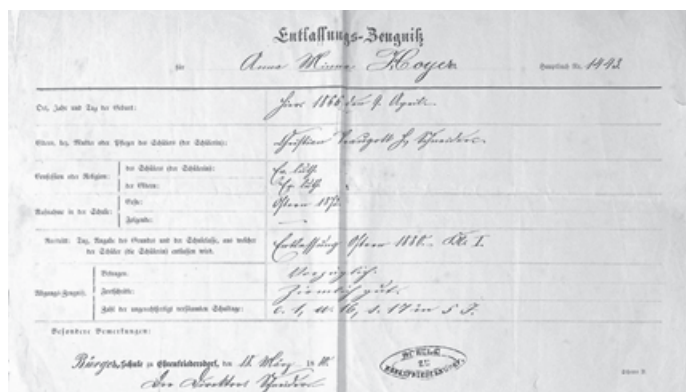 Entlassungs-Zeugniß
für Anna Minna Hoyer. Hauptbuch No. 1442
Ort, Jahr und Tag der Geburt: hier 1866 den 9. April.
Eltern, bez. Mutter oder Pfleger des Schülers (der Schülerin): Christian Traugott H, Schneider.
Confession oder Religion:
des Schülers (der Schülerin): Ev. luth.
der Eltern: Ev. luth.
Aufnahme in der Schule:
Erste: Ostern 1872
Folgende: —
Austritt. Tag, Angabe des Grundes und der Schulklasse, aus welcher
der Schüler (die Schülerin) entlassen wird. Entlassung Ostern 1880. Kl. I.
Abgangs-Zeugniß.
Betragen: Vorzüglich.
Fortschritte: Ziemlich gut.
Zahl der ungerechtfertigt versäumten Schultage: 16, 17 in 5 J.
Besondere Bemerkungen:
Bürger-Schule zu den 11. März 18
Der Direktor Schneider
SCHULE
ZU